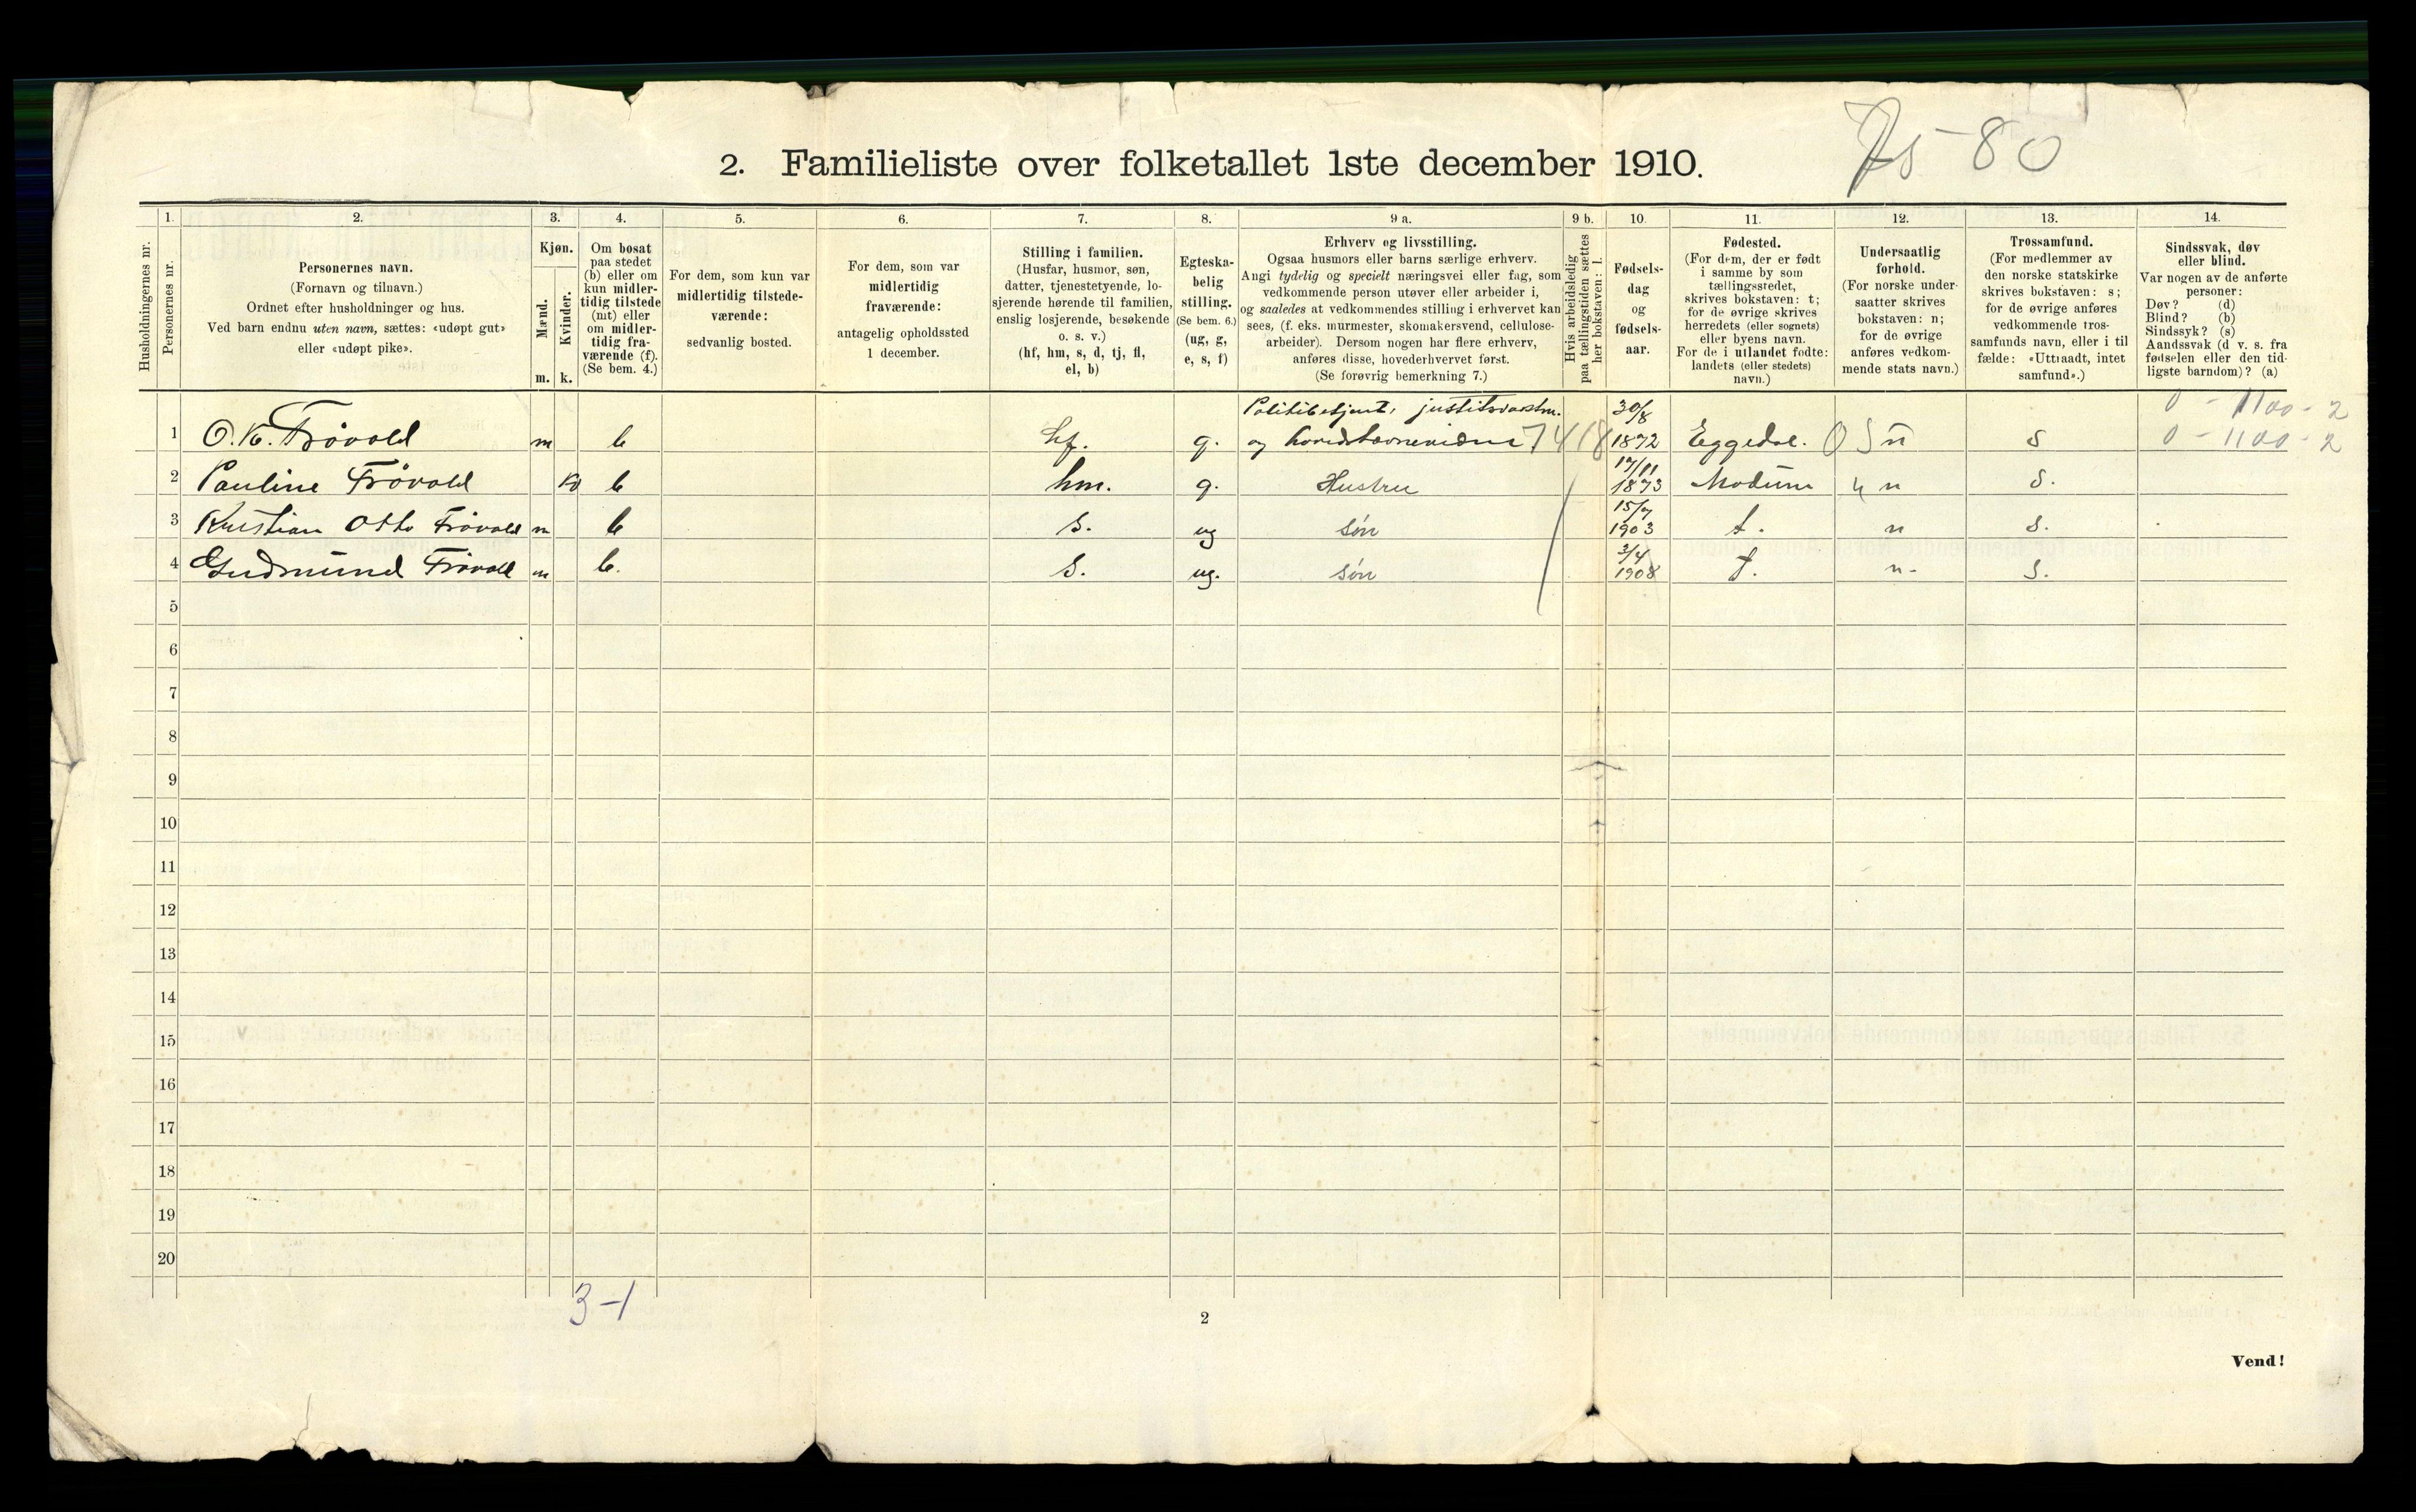 75-80
2. Familieliste over folketallet 1ste december 1910.
1. 2. 3. 4. 5. 6. 7. 8. 9 a. 9 b. 10. 11. 12. 13. 14.
Husholdningernes nr.
Personernes nr.
Personernes navn.
(Fornavn og tilnavn.)
Ordnet efter husholdninger og hus.
Ved barn endnu uten navn, sættes: «udøpt gut»
eller «udøpt pike».
Kjøn.
Mænd.
Kvinder.
m. k.
Om bosat
paa stedet
(b) eller om
kun midler-
tidig tilstede
(mt) eller
om midler-
tidig fra-
værende (f).
(Se bem. 4.)
For dem, som kun var
midlertidig tilstede-
værende:
sedvanlig bosted.
For dem, som var
midlertidig
fraværende:
antagelig opholdssted
1 december.
Stilling i familien.
(Husfar, husmor, søn,
datter, tjenestetyende, lo-
sjerende hørende til familien,
enslig losjerende, besøkende
o. s. v.)
(hf, hm, s, d, tj, fl,
el, b)
Egteska-
belig
stilling.
(Se bem. 6.)
(ug, g,
e, s, f)
Erhverv og livsstilling.
Ogsaa husmors eller barns særlige erhverv.
Angi tydelig og specielt næringsvei eller fag, som
vedkommende person utøver eller arbeider i,
og saaledes at vedkommendes stilling i erhvervet kan
sees, (f. eks. murmester, skomakersvend, cellulose-
arbeider). Dersom nogen har flere erhverv,
anføres disse, hovederhvervet først.
(Se forøvrig bemerkning 7.)
Hvis arbeidsledig
paa tællingstiden sættes
her bokstaven: l.
Fødsels-
dag
og
fødsels-
aar.
Fødested.
(For dem, der er født
i samme by som
tællingsstedet,
skrives bokstaven: t;
for de øvrige skrives
herredets (eller sognets)
eller byens navn.
For de i utlandet fødte:
landets (eller stedets)
navn.)
Undersaatlig
forhold.
(For norske under-
saatter skrives
bokstaven: n;
for de øvrige
anføres vedkom-
mende stats navn.)
Trossamfund.
(For medlemmer av
den norske statskirke
skrives bokstaven: s;
for de øvrige anføres
vedkommende tros-
samfunds navn, eller i til
fælde: «Uttraadt, intet
samfund».)
Sindssvak, døv
eller blind.
Var nogen av de anførte
personer:
Døv? (d)
Blind? (b)
Sindssyk? (s)
Aandssvak (d v. s. fra
fødselen eller den tid-
ligste barndom)? (a)
Politibetjent, justitsvaktm. 30/8 0 - 1100 - 2
1 O. K. Frövold m b hf. g. og 7418 1872 Eggedal. n s 0 - 1100 - 2
2 Pauline Frövold k b hm. g. Hustru 17/11 1873 Modum n s.
3 Kristian Otto Frövold m b s. ug søn 15/7 1903 t. n s.
4 Gudmund Frövold m b. s. ug. søn 3/4 1908 t. n. s.
5
6
7
8
9
10
11
12
13
14
15
16
17
18
19
20
3-1
2
Vend!